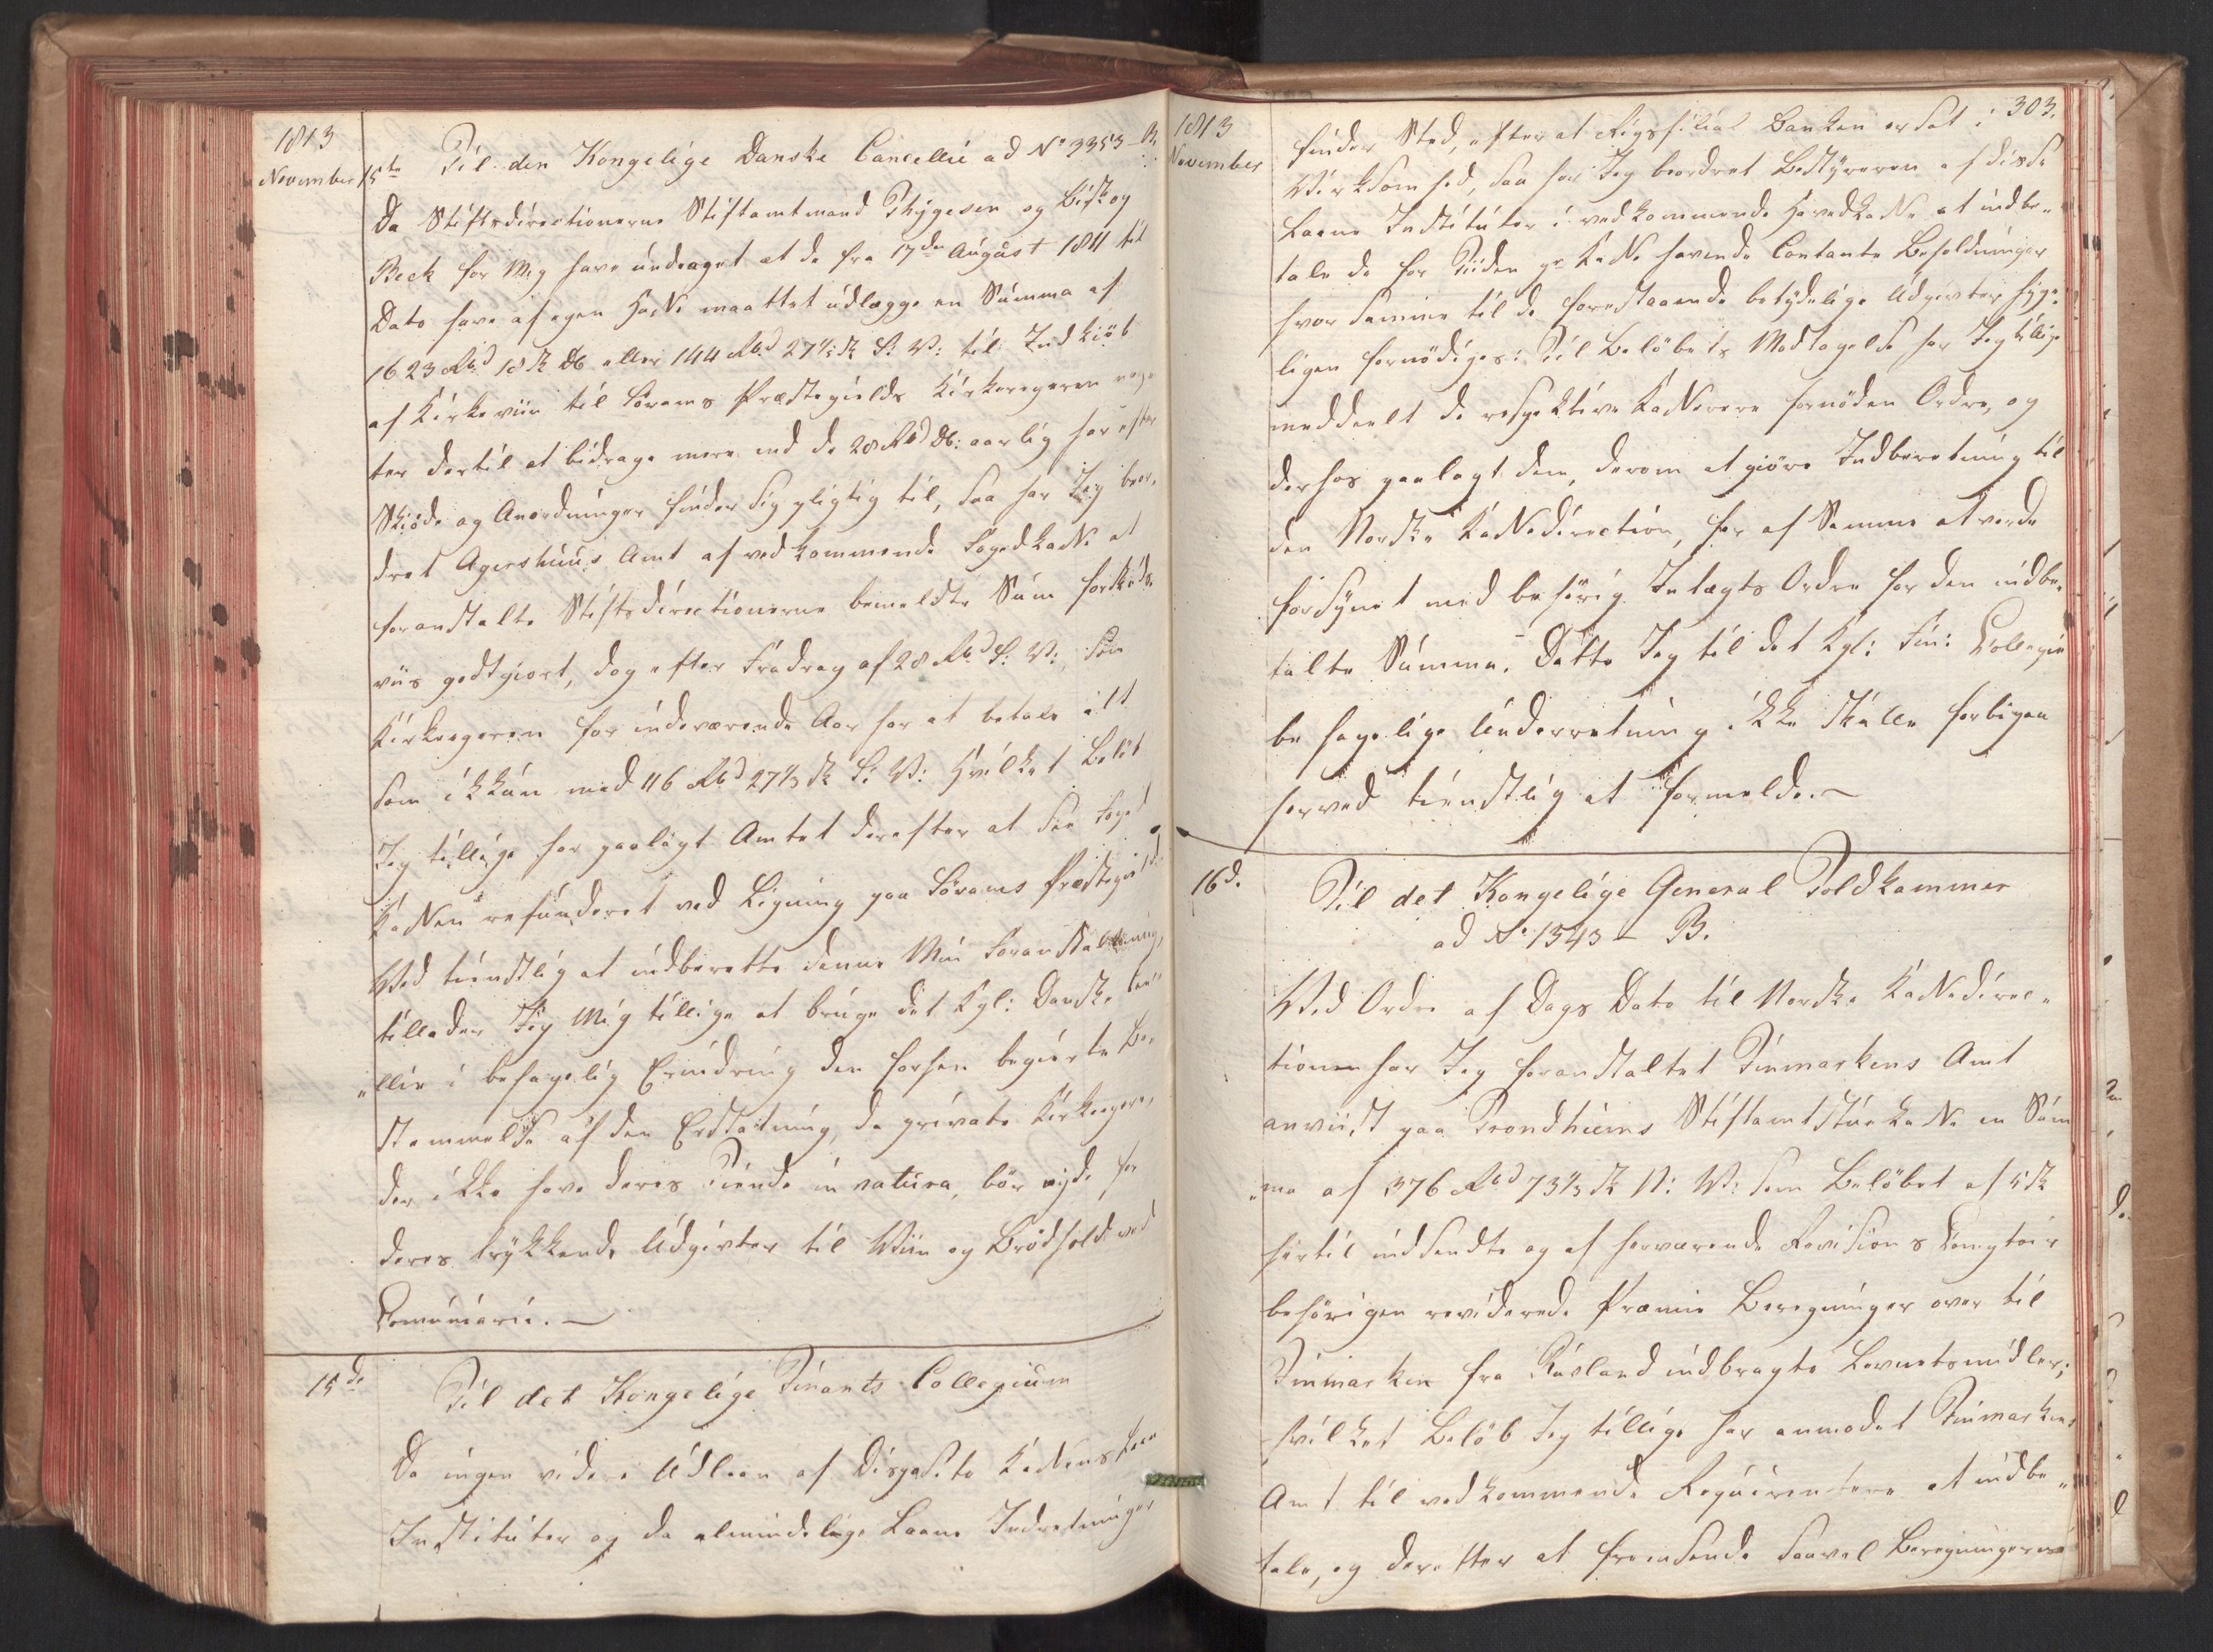 1813
November 15de
Til den Kongelige Danske Cancellie ad No 3353 - B.
Da Stiftsdirectionerne Stiftamtmand Thygesen og Biskop
Bech for Mig have andraget at de fra 17de August 1811 til
Dato have af egen Kasse maattet udlægge en Summa af
1623 Rbd 18 sk DC eller 144 Rbd 27 1/3 sk S: V: til Indkiöb
af Kirkeviin til Sörums Præstegields Kirkeeieren
ter dertil at bidrage mere end de 28 Rbd DC: aarlig han efter
Skiöde og Anordninger finder sig pligtig til, saa har Jeg beor-
dret Agershuus Amt af vedkommende Fogedkasse at
foranstalte Stiftsdirectionerne bemeldte Sum forskuds-
viis godtgiort, dog efter Fradrag af 28 Rbd S: V: som
Kirkeeieren for indeværende Aar har at betale alt
saa ikkun med 116 Rbd 27 1/3 sk S: V: Hvilket Belöb
Jeg tillige har paalagt Amtet derefter at see Foged
Kassen refunderet ved Ligning paa Sörums Præstegield.
Ved tienstlig at indberette denne Min Foranstaltning,
tillader Jeg Mig tillige at bringe det Kgl: Danske Can-
"cellie i behagelig Erindring den forhen begierte Be-
stemmelse af den Erstatning, de private Kirkeeiere,
der ikke have deres Tiende in natura, bör nyde for
deres trykkende Udgivter til Viin og Brödhold ved
Communion. —
15de
Til det Kongelige Finants Collegium
Da ingen videre Udlaan af Disposito Kassens Laane
Instituter og de almindelige Laane Indretninger
1813
November
303.
finder Sted, efterat Rigsfilial Banken er sat i
Virksomhed, saa har Jeg beordret Bestyreren af disse
Laane Instituter i vedkommende Hovedkasse at indbe-
tale de for Tiden pr Kasse havende Contante Beholdninger
hvor samme til de forestaaende betydelige Udgivter höye-
ligen fornödiges: Til Belöbets Modtagelse har Jeg tillige
meddeelt de respektive Kasserere fornöden Ordre, og
derhos paalagt dem, derom at giöre Indberetning til
den Norske Kassedirection, for af Samme at vorde
forsynet med behörig Indtægts Ordre for den indbe-
talte Summa. Dette Jeg til det Kgl: Fin: Collegii
behagelige Underretning ikke skulle forbigaae
herved tienstlig at formelde. —
16d.
Til det Kongelige General Toldkammer
ad No 1543 - B.
Ved Ordre af Dags Dato til Norske Kassedirec-
tionen har Jeg foranstaltet Finmarkens Amt
anviist paa Trondhiems Stiftamtstuekasse en Sum
"ma af 376 Rbd 73 1/3 sk N: V: som Belöbet af 5 sk
hertil indsendte og af herværende Revisions Comptoir
behörigen reviderede Præmie Beregninger over til
Finmarken fra Rusland indbragte Levnetsmidler;
hvilket Belöb Jeg tillige har anmodet Finmarkens
Amt til vedkommende Reqvirentere at indbe-
tale, og derefter at fremsende saavel Beregningerne